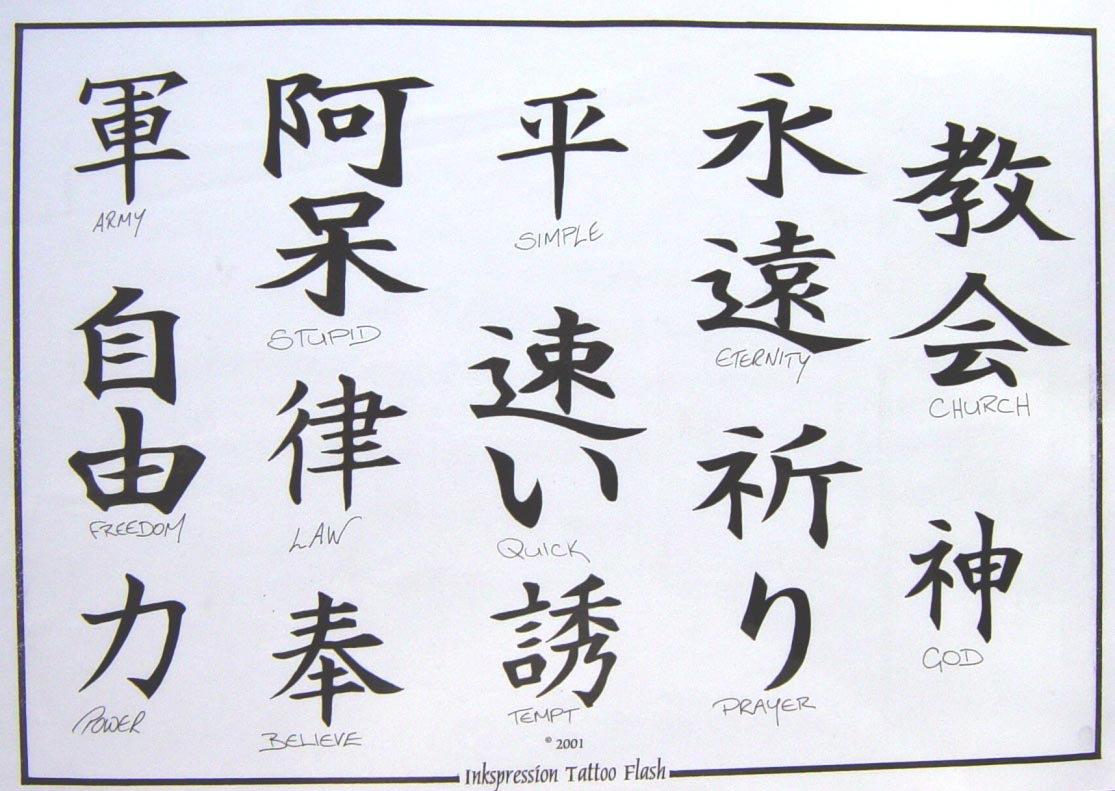 軍
ARMY
自由
FREEDOM
力
POWER
阿呆
STUPID
律
LAW
奉
BELIEVE
平
SIMPLE
速い
QUICK
誘
TEMPT
永遠
ETERNITY
祈り
PRAYER
教会
CHURCH
神
GOD
© 2001
Inkspression Tattoo Flash